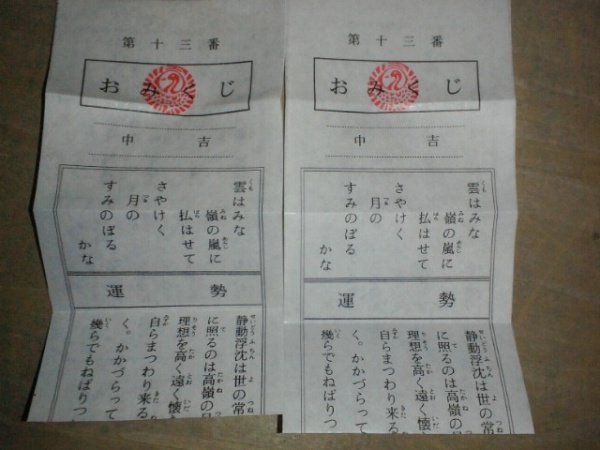 第十三番
おみくじ
中吉
雲はみな
嶺の嵐に
払はせて
さやけく
月の
すみのぼる
かな
運勢
静動浮沈は世の常
に照るのは高嶺の
理想を高く遠く懐
自らまつわり来る
く。かかづらって
幾らでもねばりつ
第十三番
おみくじ
中吉
雲はみな
嶺の嵐に
払はせて
さやけく
月の
すみのぼる
かな
運勢
静動浮沈は世の常
に照るのは高嶺の
理想を高く遠く懐
自らまつわり来る
く。かかづらって
幾らでもねばりつ